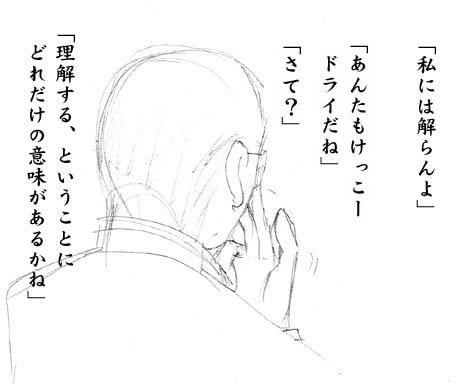 「私には解らんよ」
「あんたもけっこー
ドライだね」
「さて？」
「理解する、ということに
どれだけの意味があるかね」